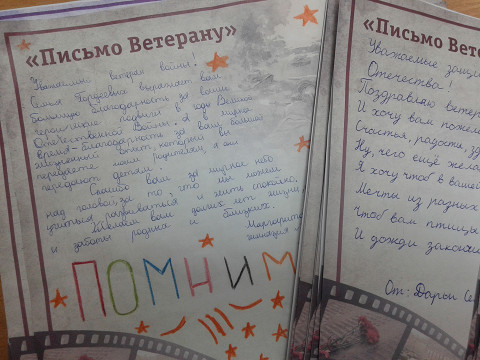 «Письмо Ветерану»
Уважаемые ветераны войны!
Семья выражает вам
большую благодарность за ваши
героические подвиги в годы Великой
Отечественной Войны. А в мирное
время - благодарность за ваш большой
жизненный опыт, который вы
передаёте нашим родителям, а они
передают детям.
Спасибо вам за мирное небо
над головой, за то, что мы можем
учиться, развиваться и жить спокойно.
Желаем вам долгих лет жизни
и заботы родных и близких.
Маргарита
гимназия
ПОМНИМ
«Письмо Вете
Уважаемые защи
Отечества!
Поздравляю ветер
И хочу вам пожела
Счастья, радости, зд
Ну, чего ещё жела
Я хочу чтоб в вашей
Мечты из разных
Чтоб вам птицы
И дожди закончи
От: Дарьи Се